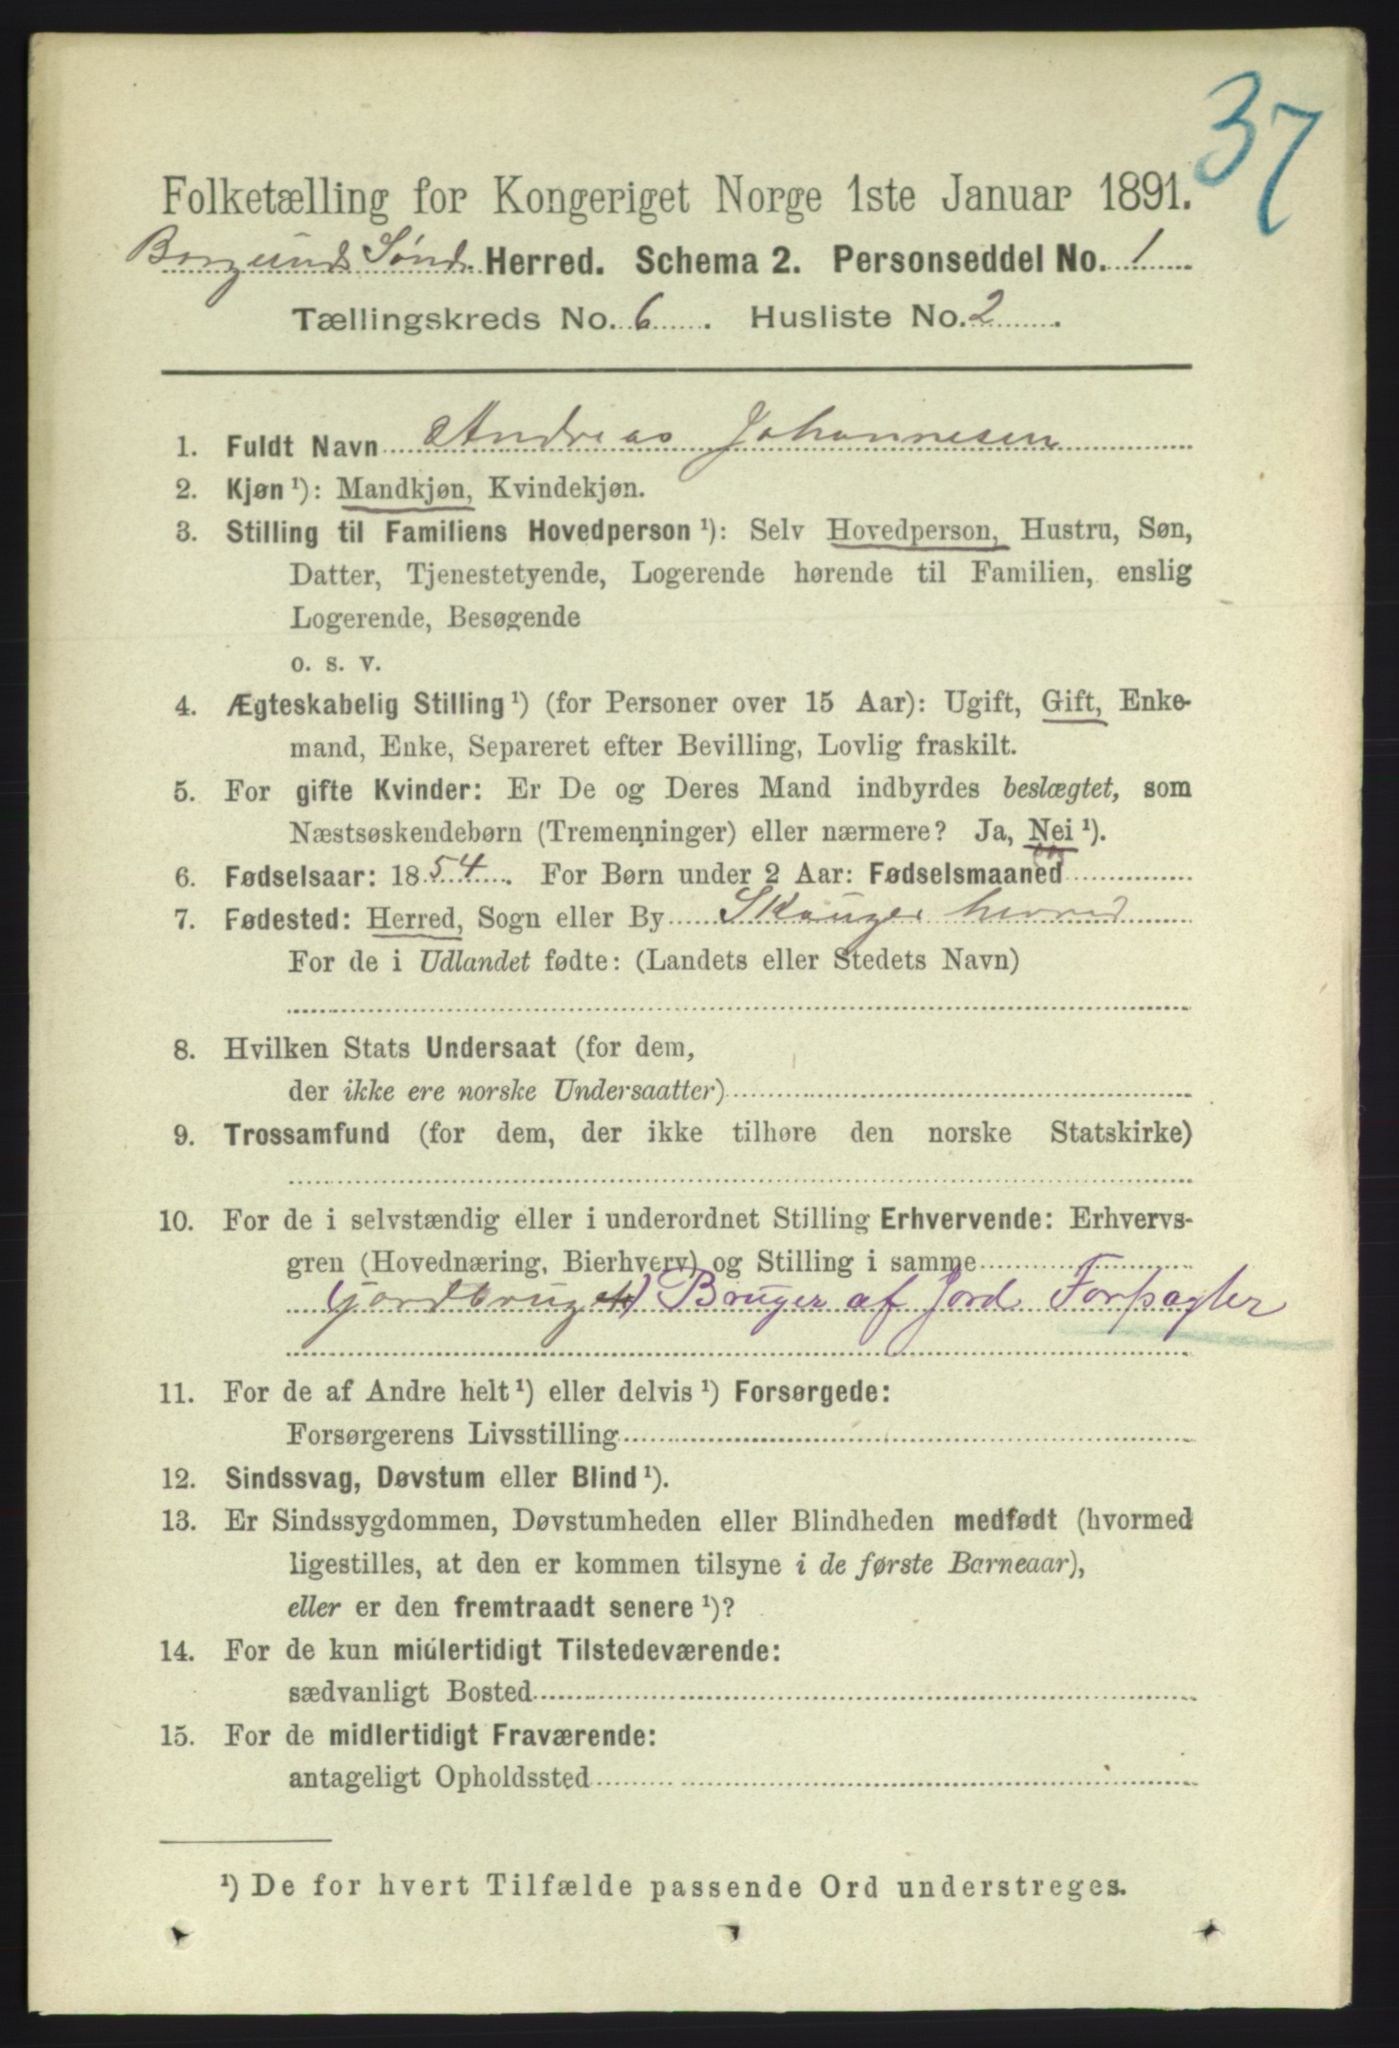 37
Folketælling for Kongeriget Norge 1ste Januar 1891.
Borgund Sønd. Herred. Schema 2. Personseddel No. 1
Tællingskreds No. 6. Husliste No. 2.
1. Fuldt Navn Andreas Johannesen
2. Kjøn ¹): Mandkjøn, Kvindekjøn.
3. Stilling til Familiens Hovedperson ¹): Selv Hovedperson, Hustru, Søn,
Datter, Tjenestetyende, Logerende hørende til Familien, enslig
Logerende, Besøgende
o. s. v.
4. Ægteskabelig Stilling ¹) (for Personer over 15 Aar): Ugift, Gift, Enke-
mand, Enke, Separeret efter Bevilling, Lovlig fraskilt.
5. For gifte Kvinder: Er De og Deres Mand indbyrdes beslægtet, som
Næstsøskendebørn (Tremenninger) eller nærmere? Ja, Nei ¹).
6. Fødselsaar: 1854. For Børn under 2 Aar: Fødselsmaaned
7. Fødested: Herred, Sogn eller By Skouger herred
For de i Udlandet fødte: (Landets eller Stedets Navn)
8. Hvilken Stats Undersaat (for dem,
der ikke ere norske Undersaatter)
9. Trossamfund (for dem, der ikke tilhøre den norske Statskirke)
10. For de i selvstændig eller i underordnet Stilling Erhvervende: Erhvervs-
gren (Hovednæring, Bierhverv) og Stilling i samme
(jordbruget) Bruger af Jord Forpagter
11. For de af Andre helt ¹) eller delvis ¹) Forsørgede:
Forsørgerens Livsstilling
12. Sindssvag, Døvstum eller Blind ¹).
13. Er Sindssygdommen, Døvstumheden eller Blindheden medfødt (hvormed
ligestilles, at den er kommen tilsyne i de første Barneaar),
eller er den fremtraadt senere ¹)?
14. For de kun midlertidigt Tilstedeværende:
sædvanligt Bosted
15. For de midlertidigt Fraværende:
antageligt Opholdssted
¹) De for hvert Tilfælde passende Ord understreges.